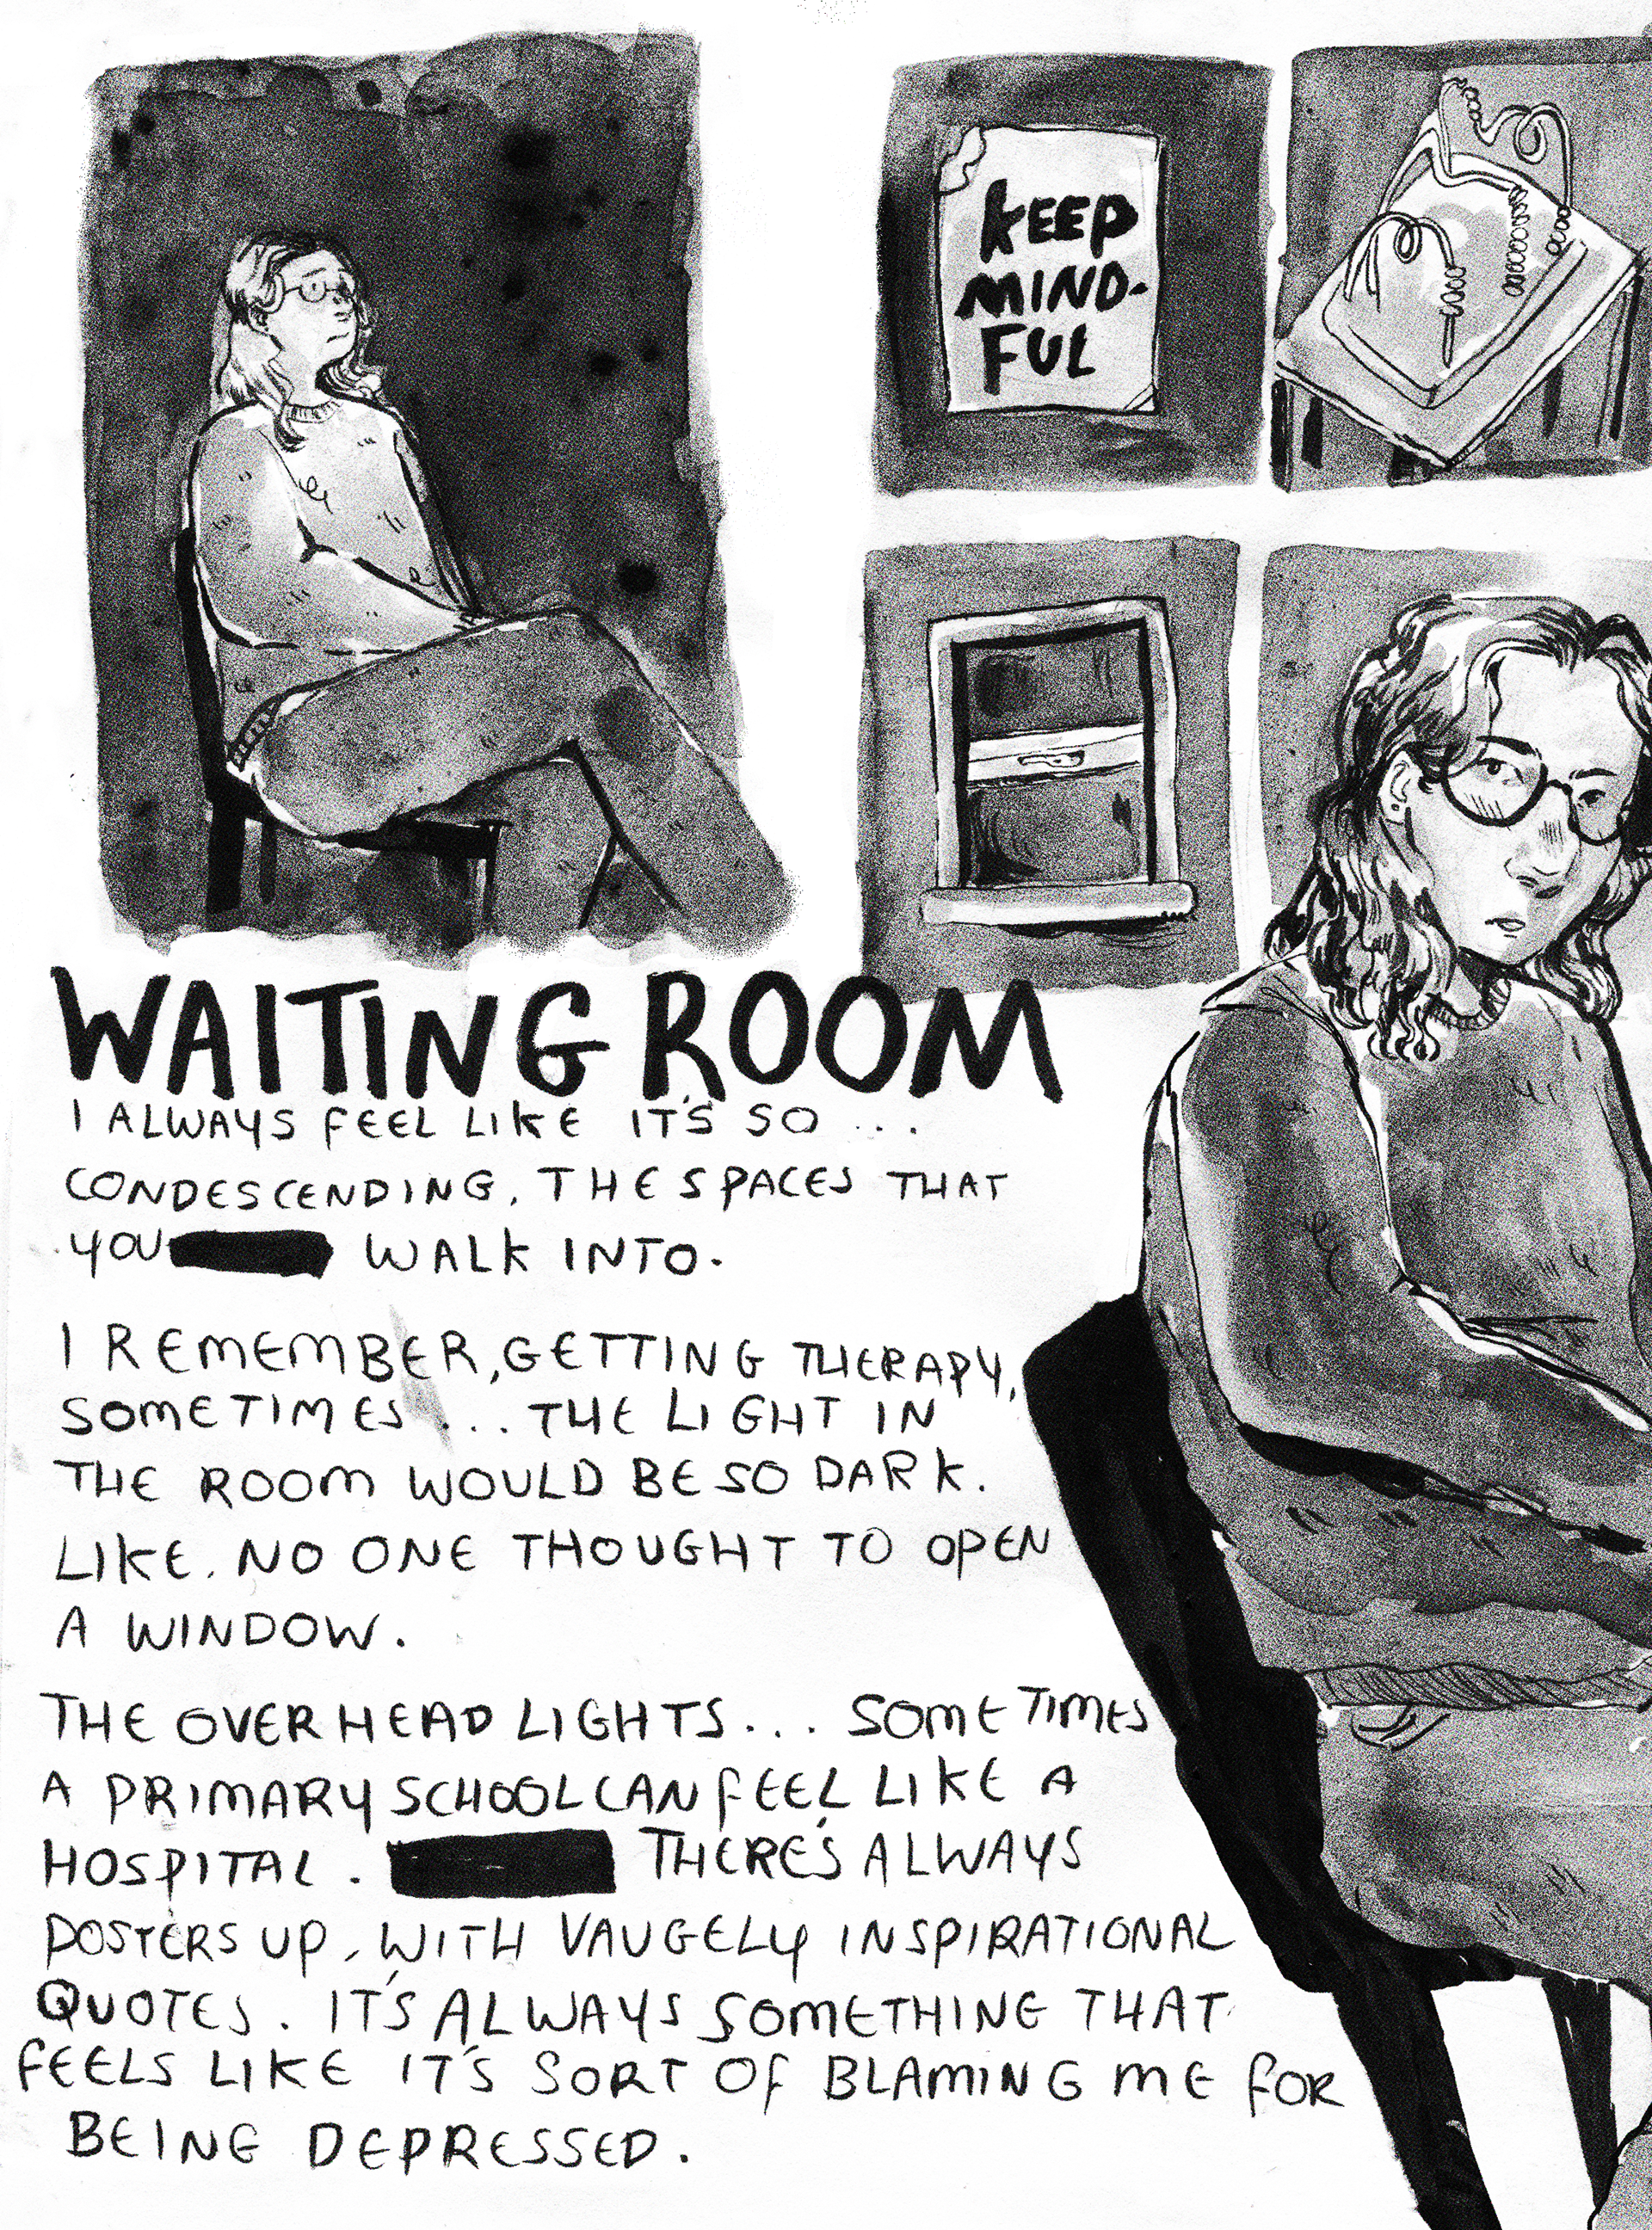 KEEP
MIND-
FUL
WAITING ROOM
I ALWAYS FEEL LIKE IT'S SO ...
CONDESCENDING, THE SPACES THAT
YOU WALK INTO.
I REMEMBER, GETTING THERAPY,
SOMETIMES ... THE LIGHT IN
THE ROOM WOULD BE SO DARK.
LIKE. NO ONE THOUGHT TO OPEN
A WINDOW.
THE OVERHEAD LIGHTS... SOMETIMES
A PRIMARY SCHOOL CAN FEEL LIKE A
HOSPITAL. THERE'S ALWAYS
POSTERS UP, WITH VAUGELY INSPIRATIONAL
QUOTES. IT'S ALWAYS SOMETHING THAT
FEELS LIKE IT'S SORT OF BLAMING ME FOR
BEING DEPRESSED.